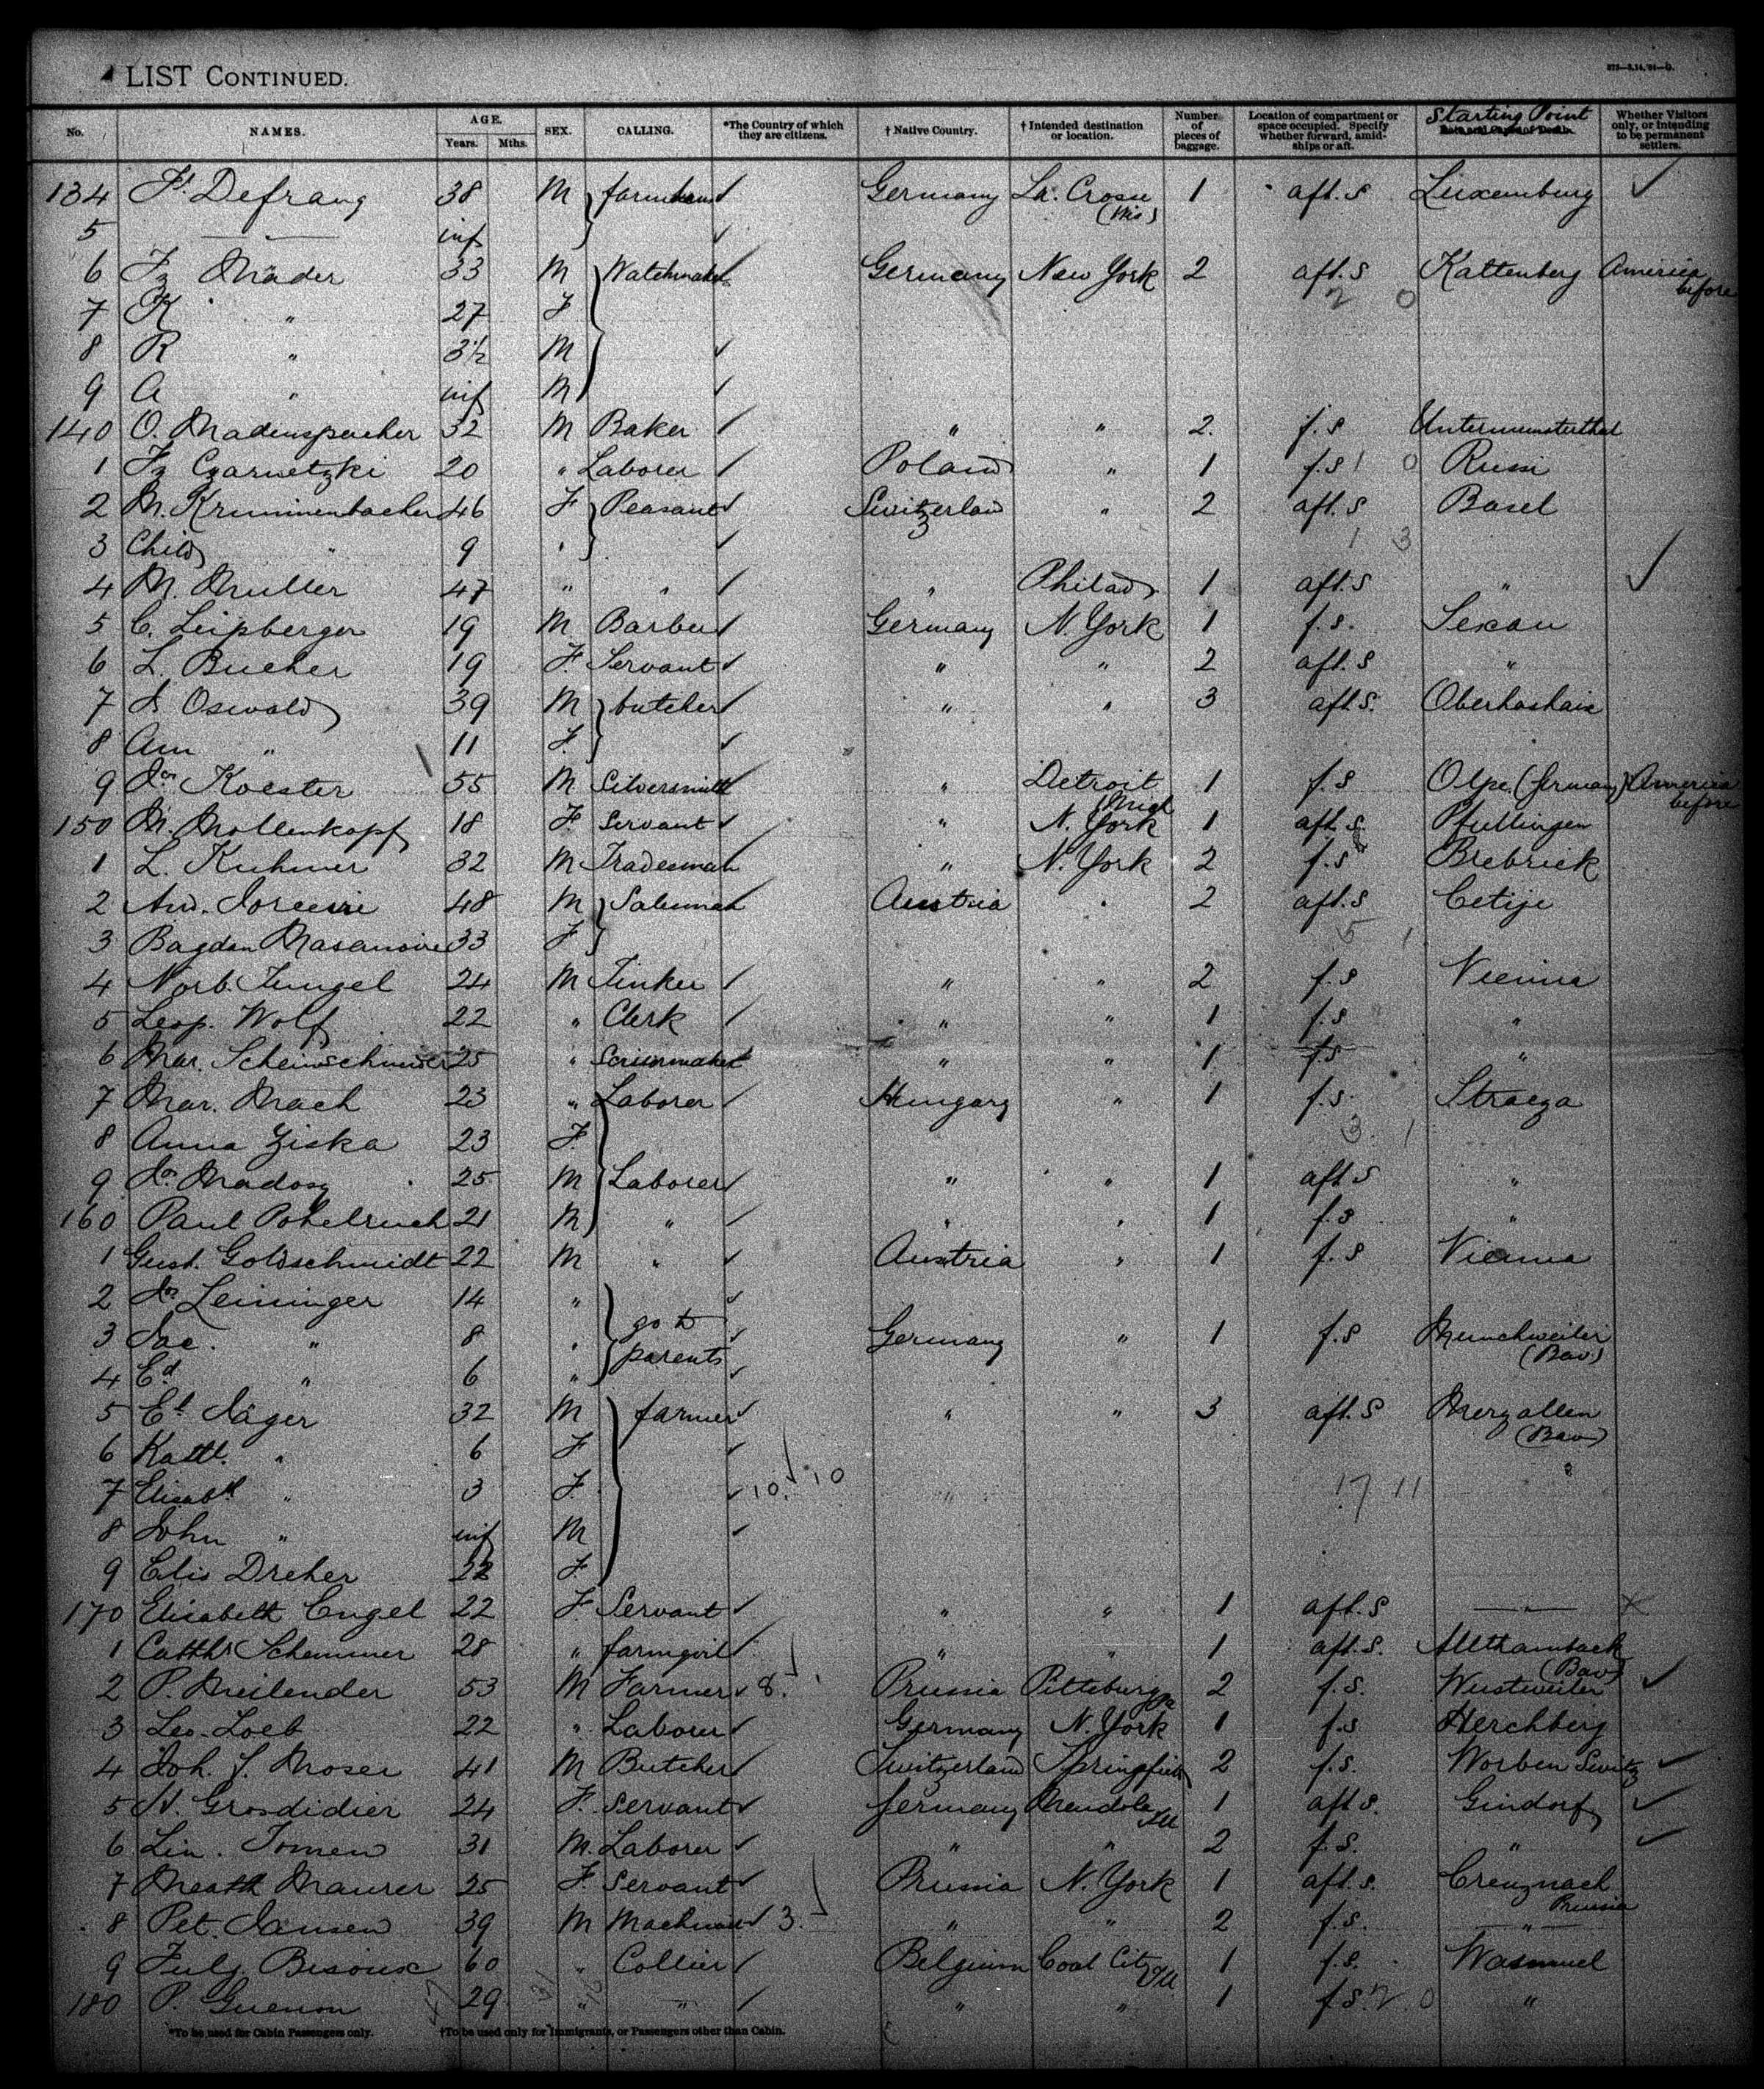 LIST CONTINUED.
No. NAMES. AGE. Years. Mths. SEX. CALLING. *The Country of which they are citizens. † Native Country. † Intended destination or location. Number of pieces of baggage. Location of compartment or space occupied. Specify whether forward, amidships or aft. Starting Point Whether Visitors only, or intending to be permanent settlers.
134 F. Defrang 38 M farmhand ✓ Germany La. Crosse (Wis) 1 aft. S Luxemburg ✓
5 —"— inf ✓
6 Fz Mäder 33 M Watchmaker Germany New York 2 aft. S Kattenberg America before
7 K " 27 F 2 0
8 R " 3½ M ✓
9 A " inf M ✓
140 O. Madenspacher 32 M Baker ✓ " " 2. f. S Untermunsterthal
1 Fz Czarnetzki 20 " Laborer ✓ Poland " 1 f. S 1 0 Russi
2 M. Krummenbacher 46 F Peasant ✓ Switzerland " 2 aft. S Basel
3 Child " 9 " ✓ 1 3
4 M. Muller 47 " " ✓ " Philad. 1 aft. S " ✓
5 C. Leipberger 19 M Barber ✓ Germany N. York 1 f. S. Sexau
6 L. Bucher 19 F. Servant ✓ " " 2 aft. S "
7 J Oswald 39 M butcher ✓ " " 3 aft S.
8 Ann " 11 F. ✓
9 Jos Koester 55 M Silversmith " Detroit (Mich 1 f. S Olpe. (Germany) America before
150 M. Mollenkopf 18 F. Servant ✓ " N. York 1 aft. S. Pfullingen
1 L. Kuhner 32 M Tradesman " N. York 2 f. S Brebrick
2 And. 48 M Austria " 2 aft. S Cetije
3 Bagdan 33 F 5 1
4 Norb. Jungel 24 M Tinker ✓ " " 2 f. S Vienna
5 Leop. Wolf 22 " Clerk ✓ " " 1 f. S "
6 Mar. 25 " " " 1 f. S "
7 Mar. Mach 23 " Laborer ✓ Hungary " 1 f. S. Stracza
8 Anna Ziska 23 F. 3. 1
9 Jos Madosy 25 M Laborer ✓ " " 1 aft S "
160 Paul 21 M " ✓ " " 1 f. S "
1 Gust. Goldschmidt 22 M " ✓ Austria " 1 f. S Vienna
2 Jos Leininger 14 " ✓
3 Jac. " 8 " go to parents ✓ Germany " 1 f. S Munchweiler (Bav)
4 Ed " 6 " ✓
5 Et Jäger 32 M farmer ✓ " " 3 aft. S Merzallen (Bav)
6 Kath. " 6 F ✓
7 Elisabth " 3 F. ✓ 10. ✓ 10 17 11
8 John " inf M ✓
9 Elis Dreher 22 F.
170 Elisabeth Engel 22 F. Servant ✓ " " 1 aft. S —"— x
1 Cathh Schemmer 28 " farmgirl ✓ " " 1 aft. S. Altthambach (Bav)
2 P. Meilender 53 M Farmer ✓ 8. Prussia Pittsburg 2 f. S. Wustweiler ✓
3 Leo. Loeb 22 " Laborer ✓ Germany N. York 1 f. S Herchberg
4 Joh. J. Moser 41 M Butcher ✓ Switzerland Springfield 2 f. S. Worben Switz ✓
5 N. Grosdidier 24 F. Servant ✓ Germany Mendota Ill 1 aft S. Gindorf ✓
6 Lin. Tomen 31 M. Laborer ✓ " " 2 f. S. " ✓
7 Meath Maurer 25 F. Servant ✓ Prussia N. York 1 aft. S. Creuznach Prussia
8 Pet. Jansen 39 M Machinist ✓ 3. " " 2 f. S. —"—
9 Julz. Bisoux 60 " Collier ✓ Belgium Coal City Ill 1 f. S. Wasmuel
180 P. Guenon 29 " " ✓ " " 1 f. S. 2. 0 "
*To be used for Cabin Passengers only. †To be used only for Immigrants, or Passengers other than Cabin.